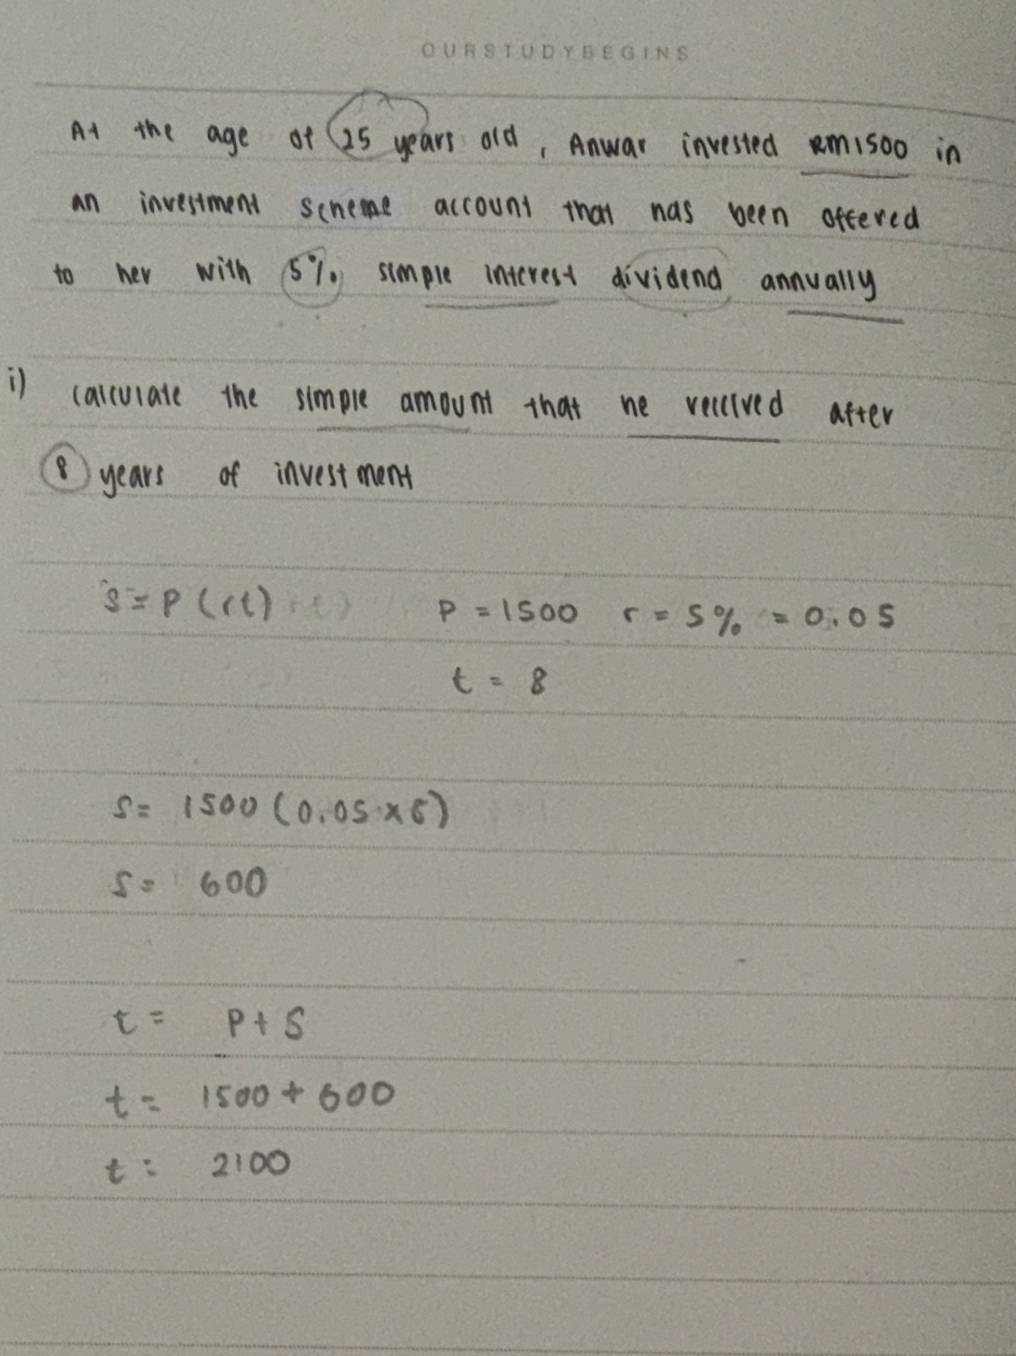 OURSTUDYBEGINS
At the age of 25 years old, Anwar invested RM1500 in
an investment scheme account that has been offered
to her with 5% simple interest dividend annually
i) calculate the simple amount that he received after
8 years of investment
S = P (rt)
P = 1500 r = 5% = 0.05
t = 8
S = 1500 (0.05 x 8)
S = 600
t = P + S
t = 1500 + 600
t = 2100